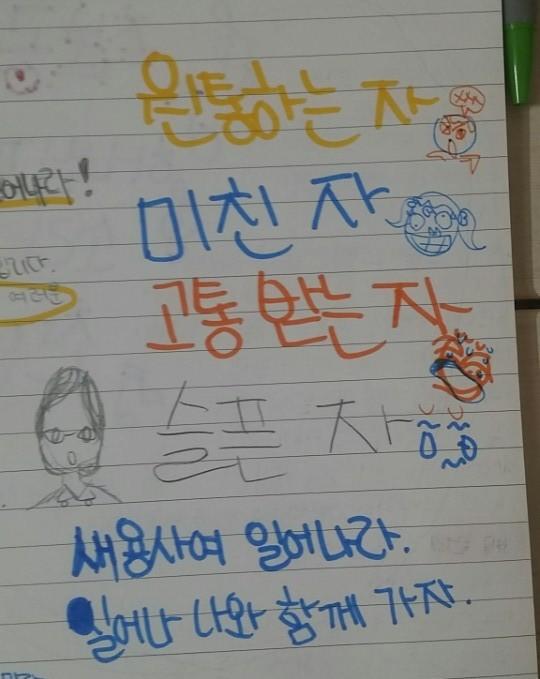 원통하는 자
어나라!
미친 자
입니다.
여러운
고통 받는 자
슬픈 자
새용사여 일어나라.
일어나 나와 함께 가자.